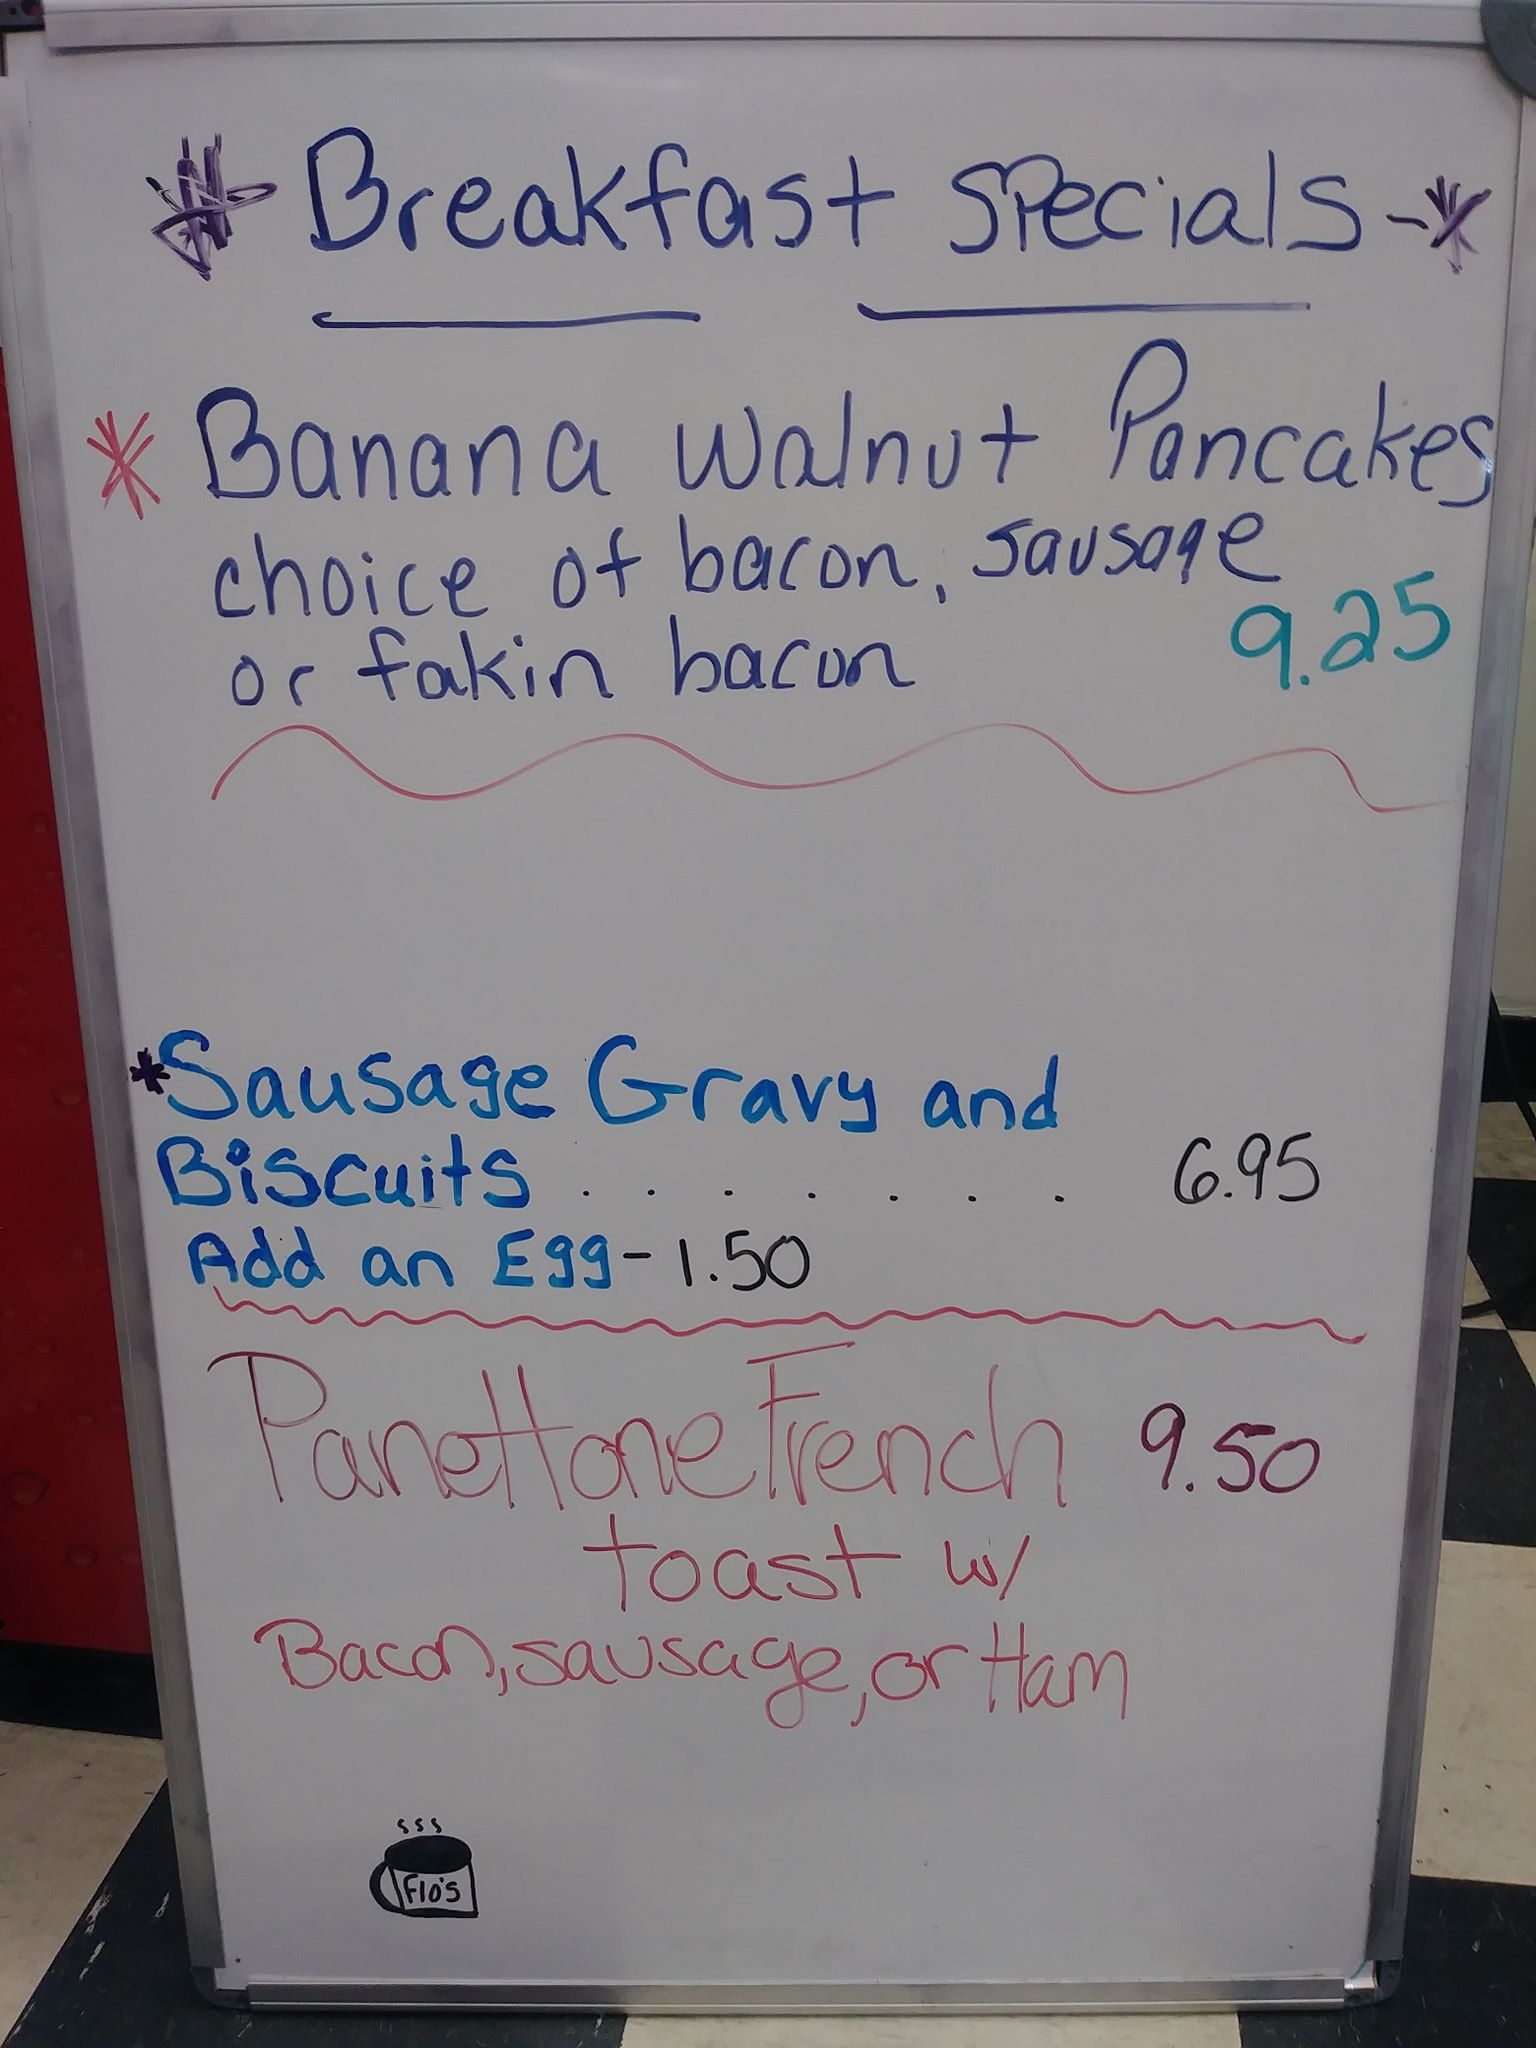 Breakfast Specials
Banana Walnut Pancakes
choice of bacon, sausage
9.25
or fakin bacon
*Sausage Gravy and
Biscuits . . . . . . . 6.95
Add an Egg - 1.50
Panettone French 9.50
toast w/
Bacon, sausage, or Ham
Flo's